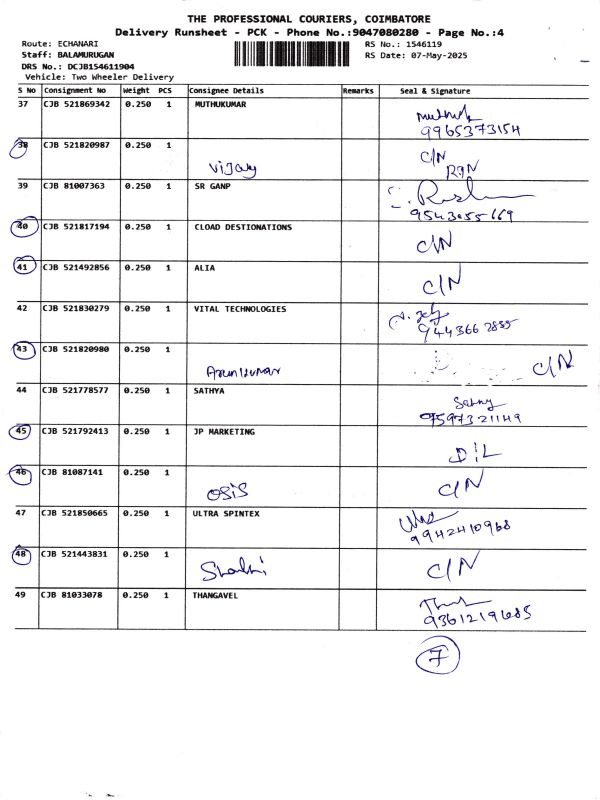 THE PROFESSIONAL COURIERS, COIMBATORE
Delivery Runsheet - PCK - Phone No.:9047080280 - Page No.:4
Route: ECHANARI RS No.: 1546119
Staff: BALAMURUGAN RS Date: 07-May-2025
DRS No.: DCJB154611904
Vehicle: Two Wheeler Delivery
S No Consignment No Weight PCS Consignee Details Remarks Seal & Signature
37 CJB 521869342 0.250 1 MUTHUKUMAR
9965373154
38 CJB 521820987 0.250 1 C/N
Vijay RTN
39 CJB 81007363 0.250 1 SR GANP
9543055669
40 CJB 521817194 0.250 1 CLOAD DESTIONATIONS
C/N
41 CJB 521492856 0.250 1 ALIA
C/N
42 CJB 521830279 0.250 1 VITAL TECHNOLOGIES
9443662855
43 CJB 521820980 0.250 1
Arunkumar C/N
44 CJB 521778577 0.250 1 SATHYA
9597321149
45 CJB 521792413 0.250 1 JP MARKETING
D/L
46 CJB 81087141 0.250 1
OSIS C/N
47 CJB 521850665 0.250 1 ULTRA SPINTEX
9942410968
48 CJB 521443831 0.250 1
Shakhi C/N
49 CJB 81033078 0.250 1 THANGAVEL
9361219685
7